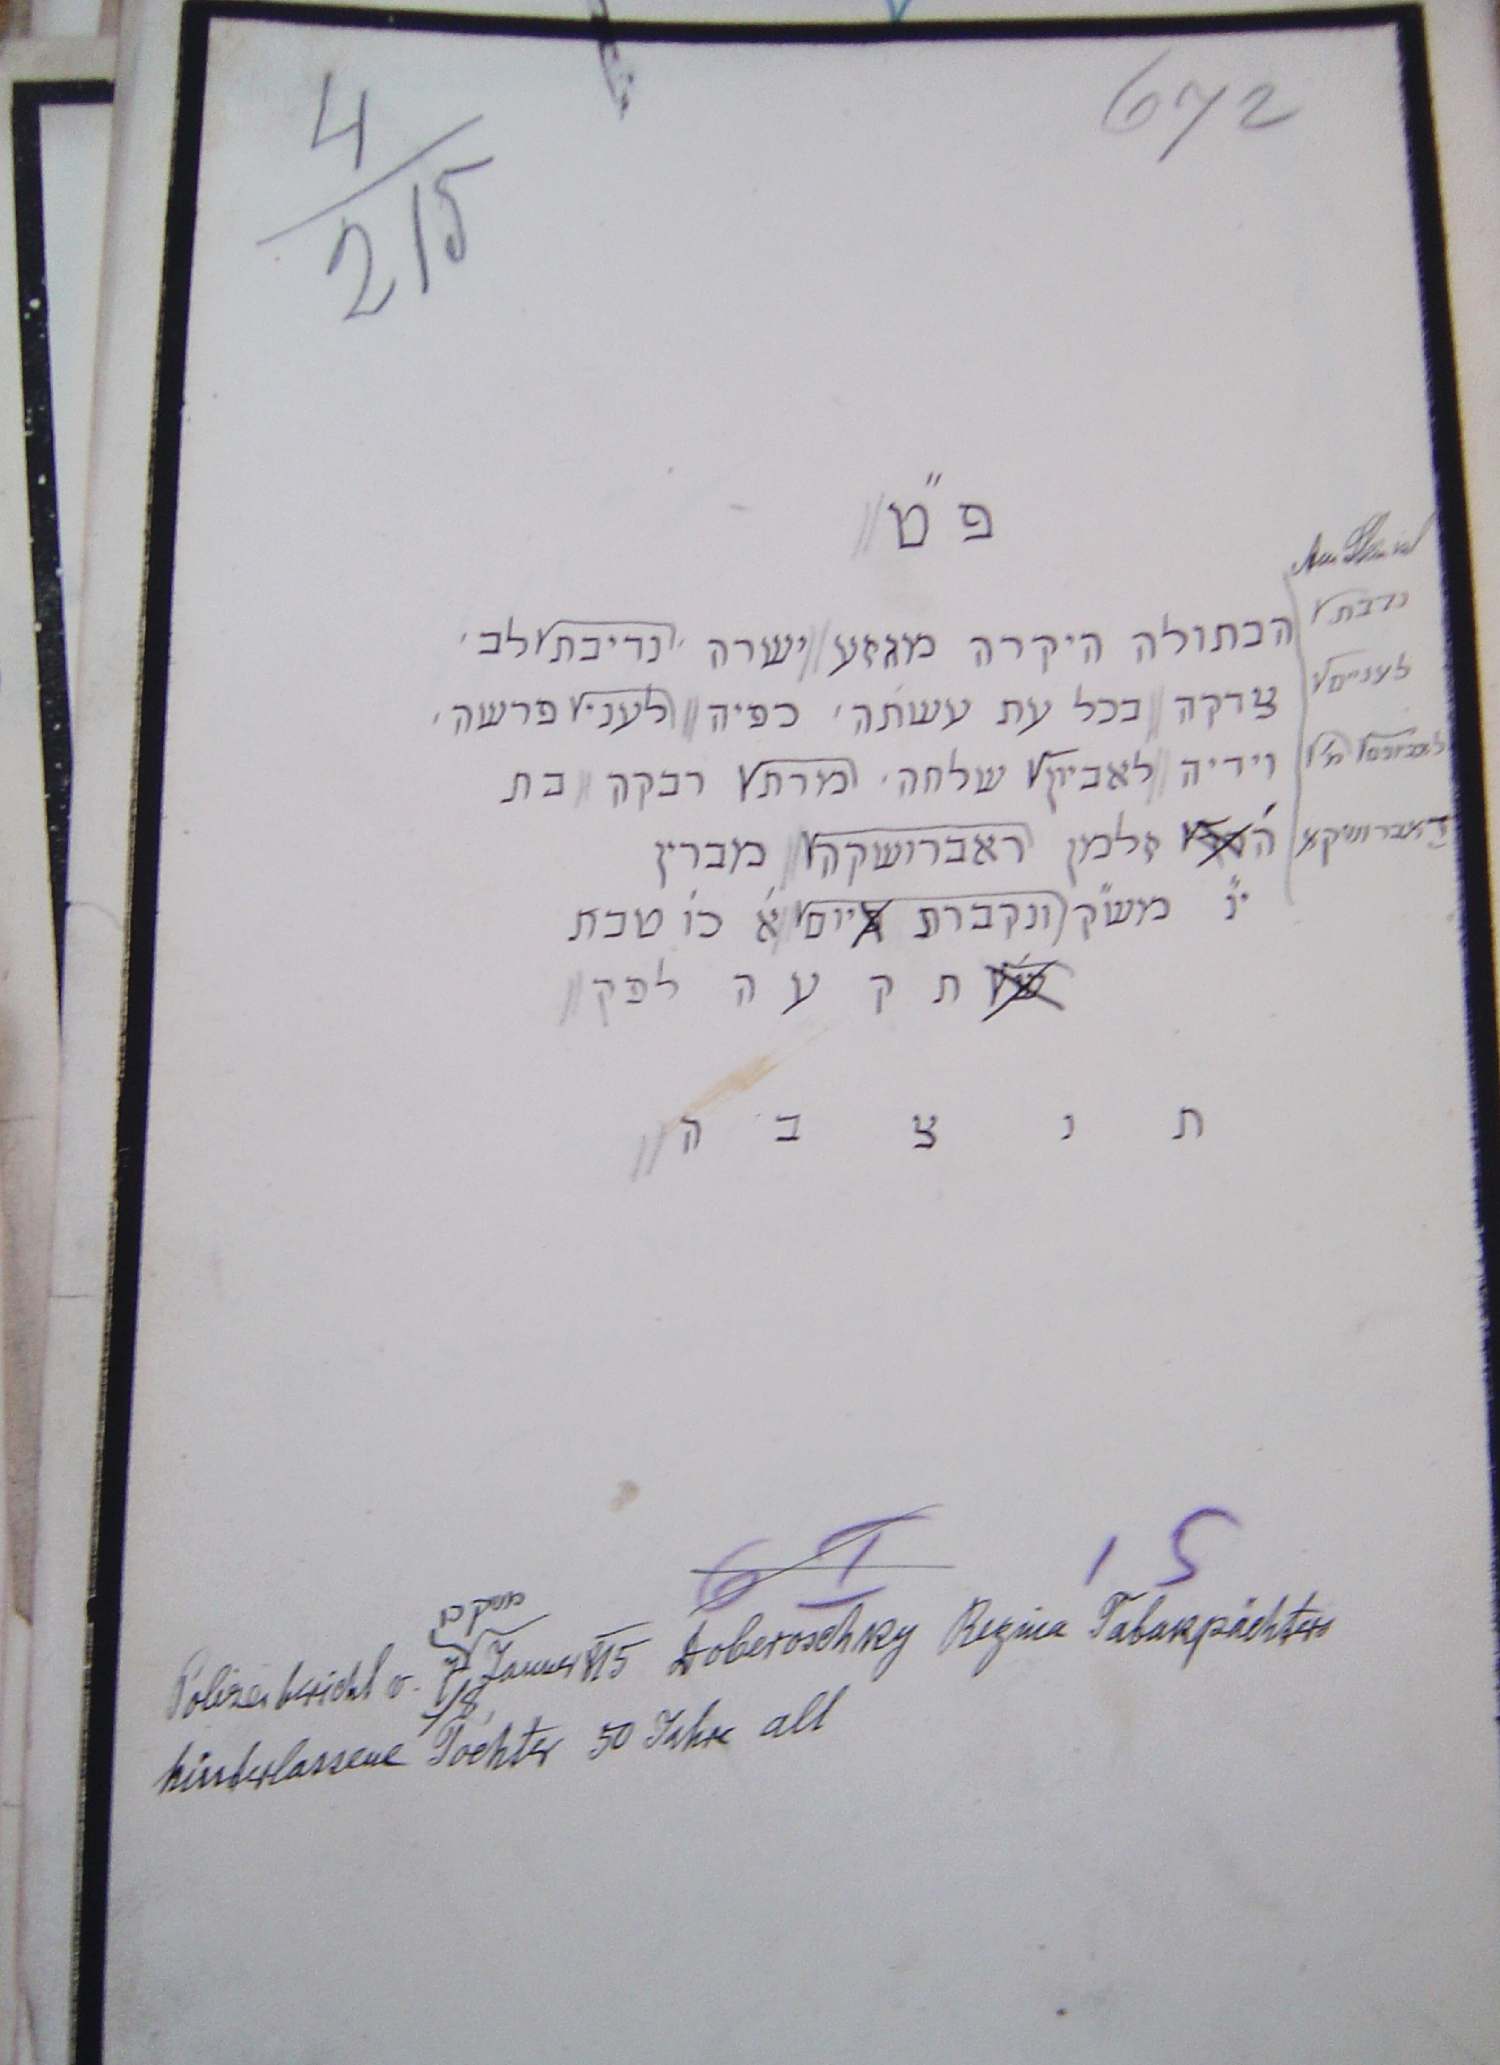 4
215
672
פ״ט
הבתולה היקרה מגזע ישרה ׳נדיבת לב׳
צדקה בכל עת עשתה׳ כפיה לעני פרשה׳
וידיה לאביון שלחה׳ מרת רבקה בת
זלמן ראברושקה מברין
י״נ מש״ק ונקברת יום א׳ כ״ו טבת
ת ק ע ה לפק
ת נ צ ב ה
נדבת
לעניים
דאברושקא
6 I
15
מש״ק כו
Polizeibericht v. Jänner 815 Doberoschky Regina Tabakpächters
hinterlassene Töchter 50 Jahre alt